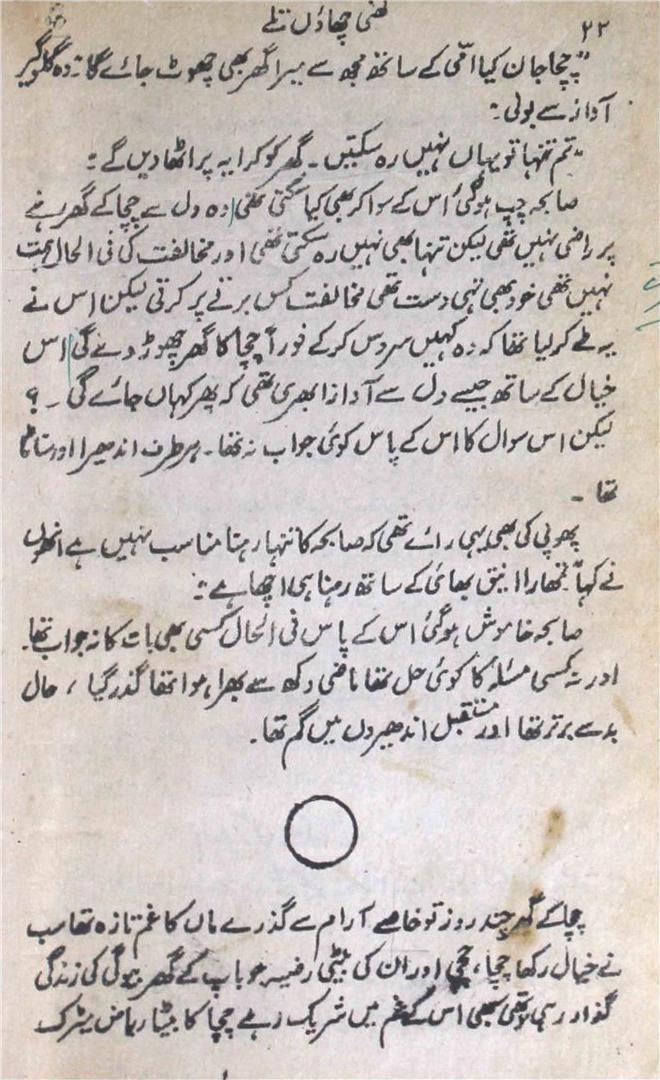 ۲۲
گھنی چھاؤں تلے
"چچا جان کیا امّی کے ساتھ مجھ سے میرا گھر بھی چھوٹ جائے گا۔" وہ گلوگیر
آواز سے بولی۔
"تم تنہا تو یہاں نہیں رہ سکتیں۔ گھر کو کرایہ پر اٹھا دیں گے۔"
صابحہ چپ ہوگئی اس کے سوا کر بھی کیا سکتی تھی وہ دل سے چچا کے گھر رہنے
پر راضی نہیں تھی لیکن تنہا بھی نہیں رہ سکتی تھی اور مخالفت کی فی الحال ہمت
نہیں تھی خود بھی تہی دست تھی مخالفت کس برتے پر کرتی لیکن اس نے
یہ طے کر لیا تھا کہ وہ کہیں سروس کر کے فوراً چچا کا گھر چھوڑ دے گی اس
خیال کے ساتھ جیسے دل سے آواز ابھری تھی کہ پھر کہاں جائے گی۔ ؟
لیکن اس سوال کا اس کے پاس کوئی جواب نہ تھا۔ ہر طرف اندھیرا اور سناٹا
تھا ۔
پھوپی کی بھی یہی رائے تھی کہ صابحہ کا تنہا رہنا مناسب نہیں ہے انھوں
نے کہا "تمھارا انیق بھائی کے ساتھ رہنا ہی اچھا ہے۔"
صابحہ خاموش ہوگئی اس کے پاس فی الحال کسی بھی بات کا نہ جواب تھا۔
اور نہ کسی مسئلہ کا کوئی حل تھا ماضی دکھ سے بھرا ہوا تھا گذر گیا ، حال
بد سے برتر تھا اور مستقبل اندھیروں میں گم تھا۔
چچا کے گھر چند روز تو خاصے آرام سے گذرے ماں کا غم تازہ تھا سب
نے خیال رکھا چچا، چچی اور ان کی بیٹی رفیسہ جو باپ کے گھر بیوگی کی زندگی
گذار رہی تھی سبھی اس کے غم میں شریک رہے چچا کا بیٹا ریاض میٹرک